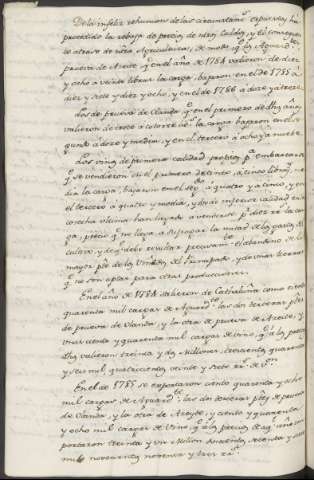 De la infeliz rehunion de las circunstan.s expuestas, ha
procedido la rebaja de precios de ntros Caldos, y el consiguiente
atraso de ntra Agricultura; de modo q.e los Aguard.tes
prueva de Azeyte q.e en el año de 1784 valieron de diez
y ocho à veinte libras la carga, bajaron en el de 1785 à
diez y siete y diez y ocho, y en el de 1786 à doze y à treze
los de prueva de Olanda q.e en el primero de dhos años
valieron de treze à catorze l.s la carga bajaron en el se-
gundo à doze y media, y en el tercero à ocho y à nueve.
Los vinos de primera calidad propios p.a embarcarse
q.e se vendieron en el primero de cinco, à cinco libras, me-
dia la carga, bajaron en el seg.do à quatro y à cinco, y en
el tercero à quatro y media, y los de inferior calidad en la
cosecha ultima han llegado à venderse p.r diez r.s la car-
ga, precio q.e no llega à disipar la mitad de los gastos del
cultivo, y de q.e debe resultar precisam.te el abandono de la
mayor p.te de los Viñedos del Principado, y de unas tierras
q.e no son aptas para otras producciones.
En el año de 1784 salieron de Cathaluña como ciento
quarenta mil cargas de Aguard.te las dos terceras p.tes
de prueva de Olanda, y la otra de prueva de Azeite, y
unas ciento y quarenta mil cargas de vino, q.e à los precios
dhos valieron treinta y dos Millones, trescientos quarenta
y seis mil, quatrocientos veinte y siete r.s de V.on
En el de 1785 se exportaron ciento quarenta y ocho
mil cargas de Aguard.te las dos terceras p.tes de prueva
de Olanda, y la otra de Azeyte, y ciento y quarenta
y ocho mil cargas de Vino, q.e à los precios de aq.l año im-
portaron treinta y un Millon, y
mil novecientos noventa y tres r.s